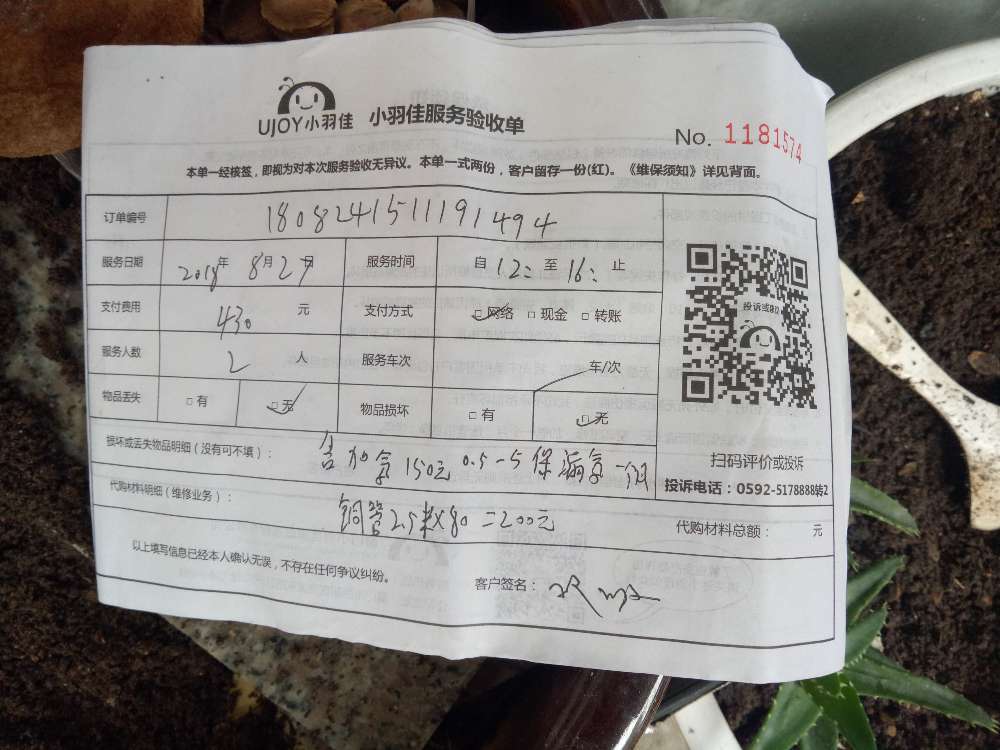 UJOY小羽佳 小羽佳服务验收单
No. 1181574
本单一经核签，即视为对本次服务验收无异议。本单一式两份，客户留存一份(红)。《维保须知》详见背面。
订单编号 1808241511191494
服务日期 2018年 8月27日 服务时间 自 12: 至 16: 止
支付费用 430 元 支付方式 □网络 □现金 □转账
服务人数 2 人 服务车次 车/次
物品丢失 □有 □无 物品损坏 □有 □无
投诉或建议
扫码评价或投诉
投诉电话：0592-5178888转2
损坏或丢失物品明细（没有可不填）： 含加氟150元 0.5-5 保漏氟一个月
代购材料明细（维修业务）： 铜管2.5米×80=200元 代购材料总额： 元
以上填写信息已经本人确认无误，不存在任何争议纠纷。 客户签名：